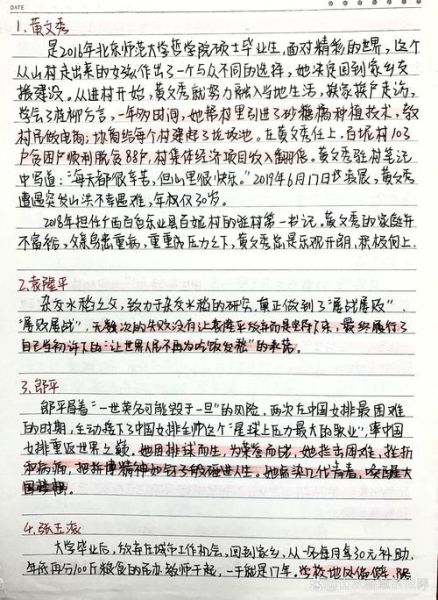 DATE
1.黄文秀
是2016年北京师范大学哲学院硕士毕业生,面对精彩的世界,这个
从山村走出来的女孩作出了一个与众不同的选择,她决定回到家乡支
援建设。从进村开始,黄文秀就努力融入当地生活,挨家挨户走访,
学会了桂柳方言,一年多时间,她帮村里引进了砂糖橘种植技术,教
村民做电商,协调给每个村建起了垃圾池。在黄文秀任上,百坭村103
户贫困户顺利脱贫88户,村集体经济项目收入翻倍。黄文秀驻村笔记
中写道:"每天都很辛苦,但心里很快乐。"2019年6月17日凌晨,黄文秀
遭遇突发山洪不幸遇难,年仅30岁。
2018年担任广西百色乐业县百坭村的驻村第一书记。黄文秀的家庭并
不富裕,父亲身患重病,重重的压力之下,黄文秀总是乐观开朗、积极向上.
2.袁隆平
杂交水稻之父,致力于杂交水稻的研究,真正做到了"屡战屡败",
"屡败屡战",无数次的失败没有让袁隆平放弃而是坚持下来,最终履行了
自己当初许下的"让世界人民不再为吃饭发愁"的承诺。
3.郎平
郎平冒着"一世英名可能毁于一旦"的风险,两次在中国女排最困难
的时期,主动接下中国女排主帅这个"星球上压力最大的职业",率中国
女排重返世界之巅。她因排球而生,为荣誉而战,她抗击困难,挫折
和病痛,把拼搏精神
4.张玉滚
大学毕业后,放弃在城市工作机会,回到家乡,从一名每月拿30元补助、
年底再分100斤粮食的民办教师干起,一干就是17年。学校地处偏僻,